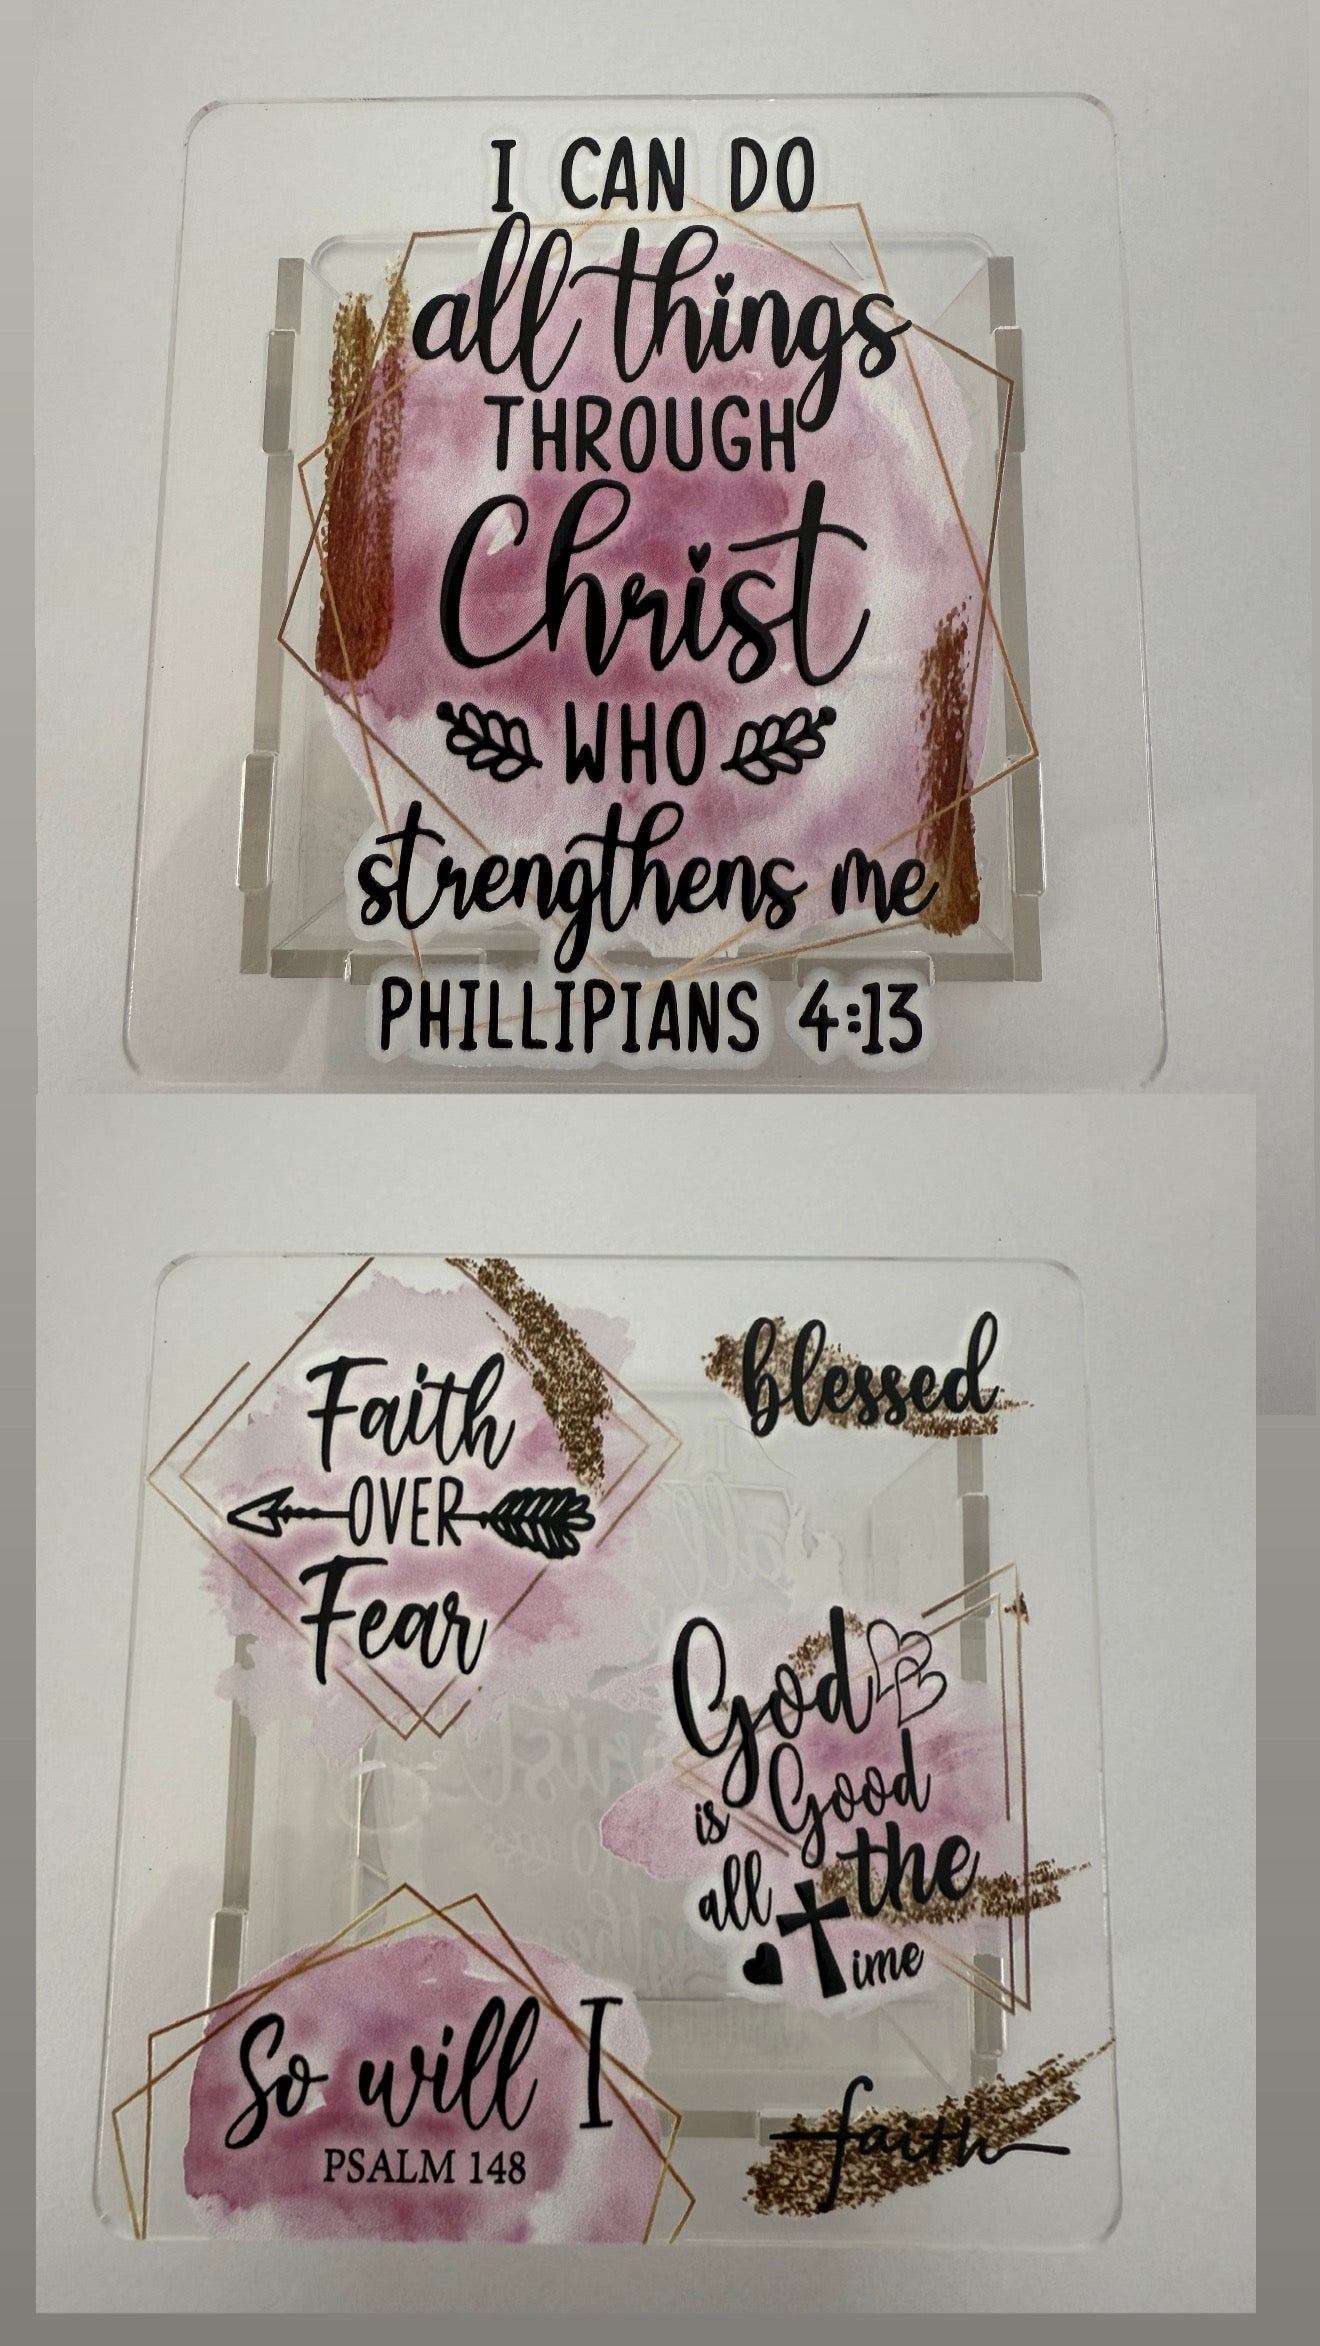 I CAN DO
all things
THROUGH
Christ
WHO
strengthens me
PHILLIPIANS 4:13
Faith
OVER
Fear
blessed
God
is Good
all the
time
So will I
PSALM 148
faith